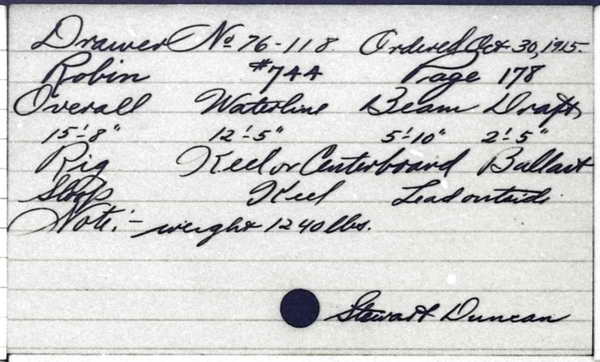 Drawer No 76-118 Ordered Oct 30, 1915.
Robin #744 Page 178
Overall Waterline Beam Draft
15'-8" 12'-5" 5'-10" 2'-5"
Rig Keel or Centerboard Ballast
Sloop Keel Lead outside
Note:- weight 1240 lbs.
Stewart Duncan